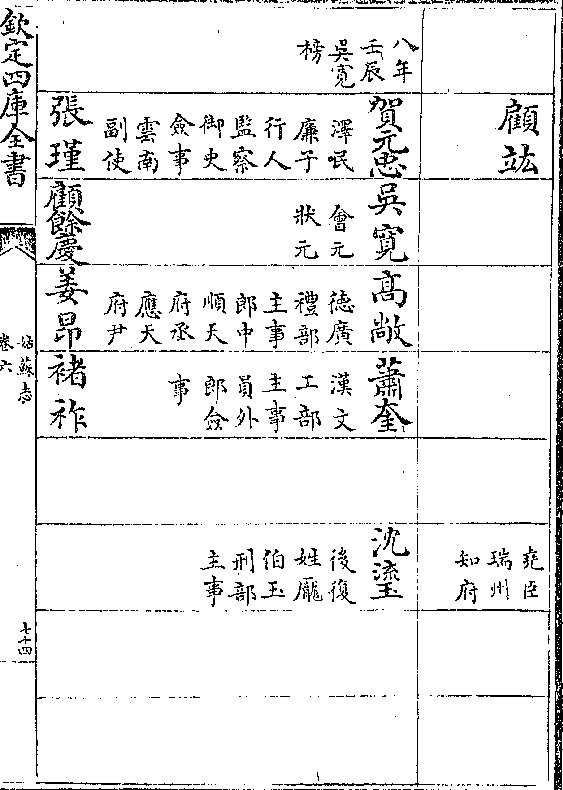 顧竑
臣
瑞州
知府
八年
壬辰
吳寛
榜
賀元忠
澤民
廉子
行人
監察
御史
僉事
雲南
副使
吳寛
會元
狀元
髙敞
德廣
禮部
主事
郎中
順天
府丞
應天
府尹
蕭奎
漢文
工部
主事
員外
郎僉
事
沈瑬
後復
姓龎
伯玉
刑部
主事
張瑾
顧餘慶
姜昂
褚祚
欽定四庫全書
姑蘇志
卷六
七十四